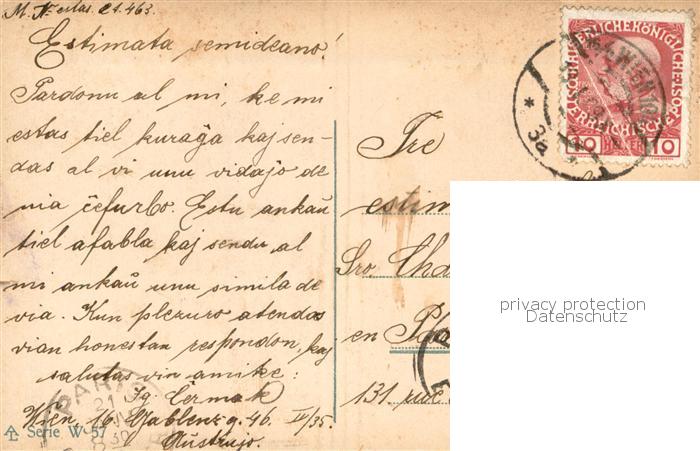 M. No estas 21.463.
Estimata semideano!
Pardonu al mi, ke mi
estas tiel kuraĝa kaj sen-
das al vi unu vidaĵo de
nia ĉefurbo. Estu ankaŭ
tiel afabla kaj sendu al
mi ankaŭ unu simila de
via. Kun plezuro atendas
vian honestan respondon, kaj
salutas vin amike:
Ig. Čermak
Wien, 16. Gablenzg. 46. IV/35.
Austrujo.
Serie W 57
PARIS
21
30
Tre
estim
Sro. Cha
en Pa
131 rue
KAISERLICHEKÖNIGLICHE
ÖSTERREICHISCHEPOST
10 HELLER 10
WIEN
* 3a
privacy protection
Datenschutz